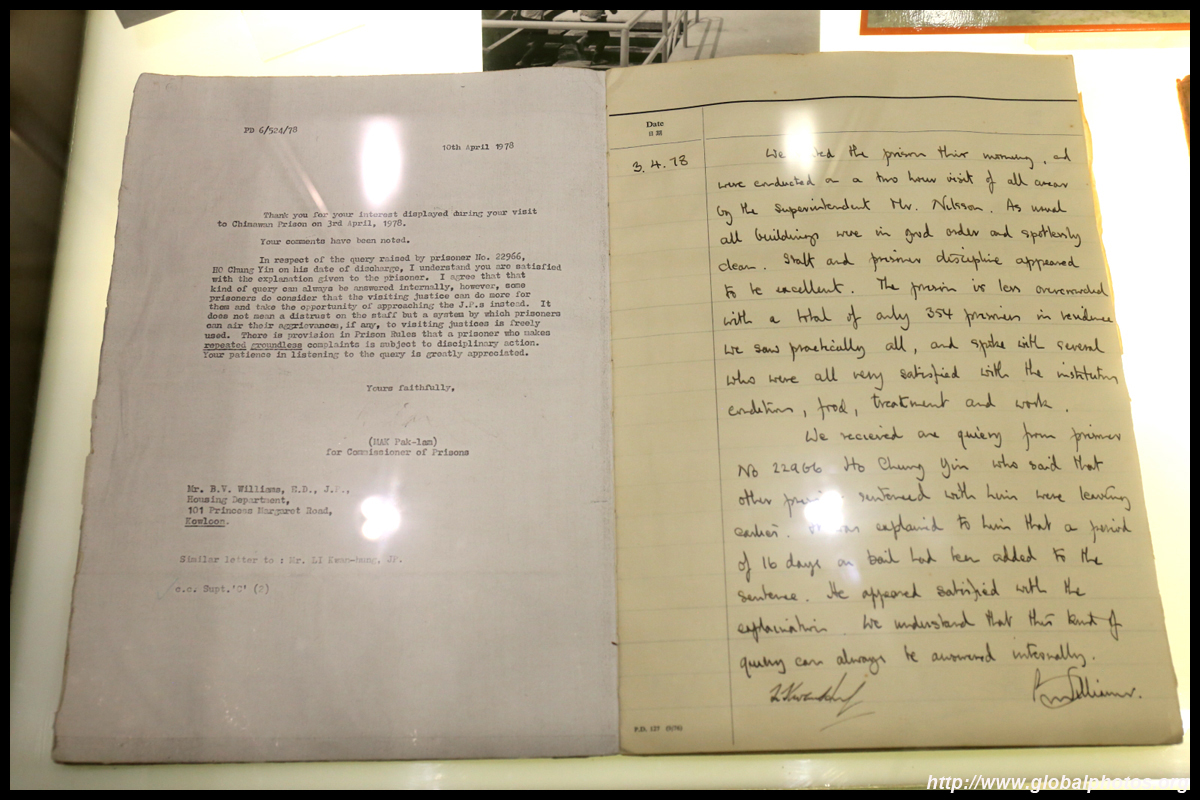 PD 6/524/78
10th April 1978
Thank you for your interest displayed during your visit
to Chimawan Prison on 3rd April, 1978.
Your comments have been noted.
In respect of the query raised by prisoner No. 22966,
HO Chung Yin on his date of discharge, I understand you are satisfied
with the explanation given to the prisoner. I agree that that
kind of query can always be answered internally, however, some
prisoners do consider that the visiting justice can do more for
them and take the opportunity of approaching the J.P.s instead. It
does not mean a distrust on the staff but a system by which prisoners
can air their aggrievances, if any, to visiting justices is freely
used. There is provision in Prison Rules that a prisoner who makes
repeated groundless complaints is subject to disciplinary action.
Your patience in listening to the query is greatly appreciated.
Yours faithfully,
(MAK Pak-lam)
for Commissioner of Prisons
Mr. B.V. Williams, E.D., J.P.,
Housing Department,
101 Princess Margaret Road,
Kowloon.
Similar letter to : Mr. LI Kwan-hung, JP.
c.c. Supt.'C' (2)
Date
日期
3.4.78
We the prison this morning, and
were conducted on a two hour visit of all areas
by the Superintendent Mr. Nilsson. As usual
all buildings were in good order and spotlessly
clean. Staff and prisoner discipline appeared
to be excellent. The prison is less overcrowded
with a total of only 354 prisoners in residence
We saw practically all, and spoke with several
who were all very satisfied with the institution
conditions, food, treatment and work.
We recieved one quiery from prisoner
No 22966 Ho Chung Yin who said that
other sentenced with him were leaving
earlier. was explained to him that a period
of 16 days on bail had been added to the
sentence. He appeared satisfied with the
explaination. We understand that this kind of
quiery can always be answered internally.
BVWilliams.
P.D. 127 (5/76)
http://www.globalphotos.org